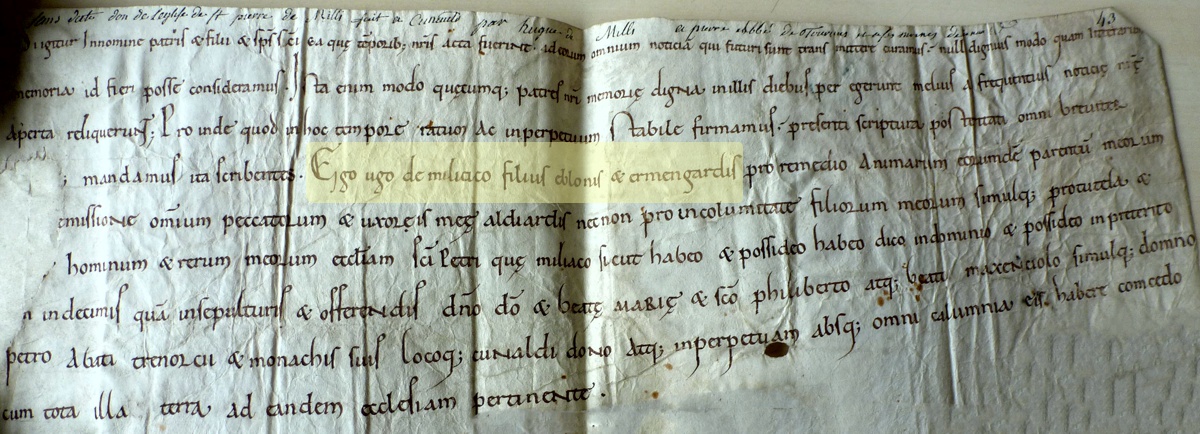 sans date don de l'eglise de st pierre de Milli fait a Cunauld par hugue de Milli a pierre abbé de Tournus 43
Igitur Innomine patris & filii & sps sci ea quę tēporib; nris acta fuerint ad eorum omnium noticia qui futuri sunt trans mittere curamus. null dignius modo quam litterarum
memoria id fieri posse consideramus. Ista enim modo quęcumq; patres nri memorię digna inillis diebus per egerunt melius a frequentius noticię nrę
Aperta reliquerunt; Pro inde quod inhoc tempore ratum ac inperpetuum stabile firmamus. presenti scriptura posteritati omni breviter
; mandamus ita scribentes. Ego ugo de miliaco filius eblonis & ermengardis pro remedio Animarum eorumdē parentū meorum
emissione omīum peccatorum & uxoris meę aldiardis necnon pro incolumitate filiorum meorum simulq; protutela &
hominum & rerum meorum eccliam sci Petri quę miliaco sicut habeo & possideo habeo dico indominio & possideo inpreterito
n indecimis quā insepulturis & offerendis dño dō & beatę MARIĘ & scō philiberto atq; beati maxenciolo simulq; domno
petro Abati trenorcii & monachis suis locoq; cunaldi dono Atq; inperpetuam absq; omni calumnia eis habere comcedo
cum tota illa terra ad eandem ecclesiam pertinente.